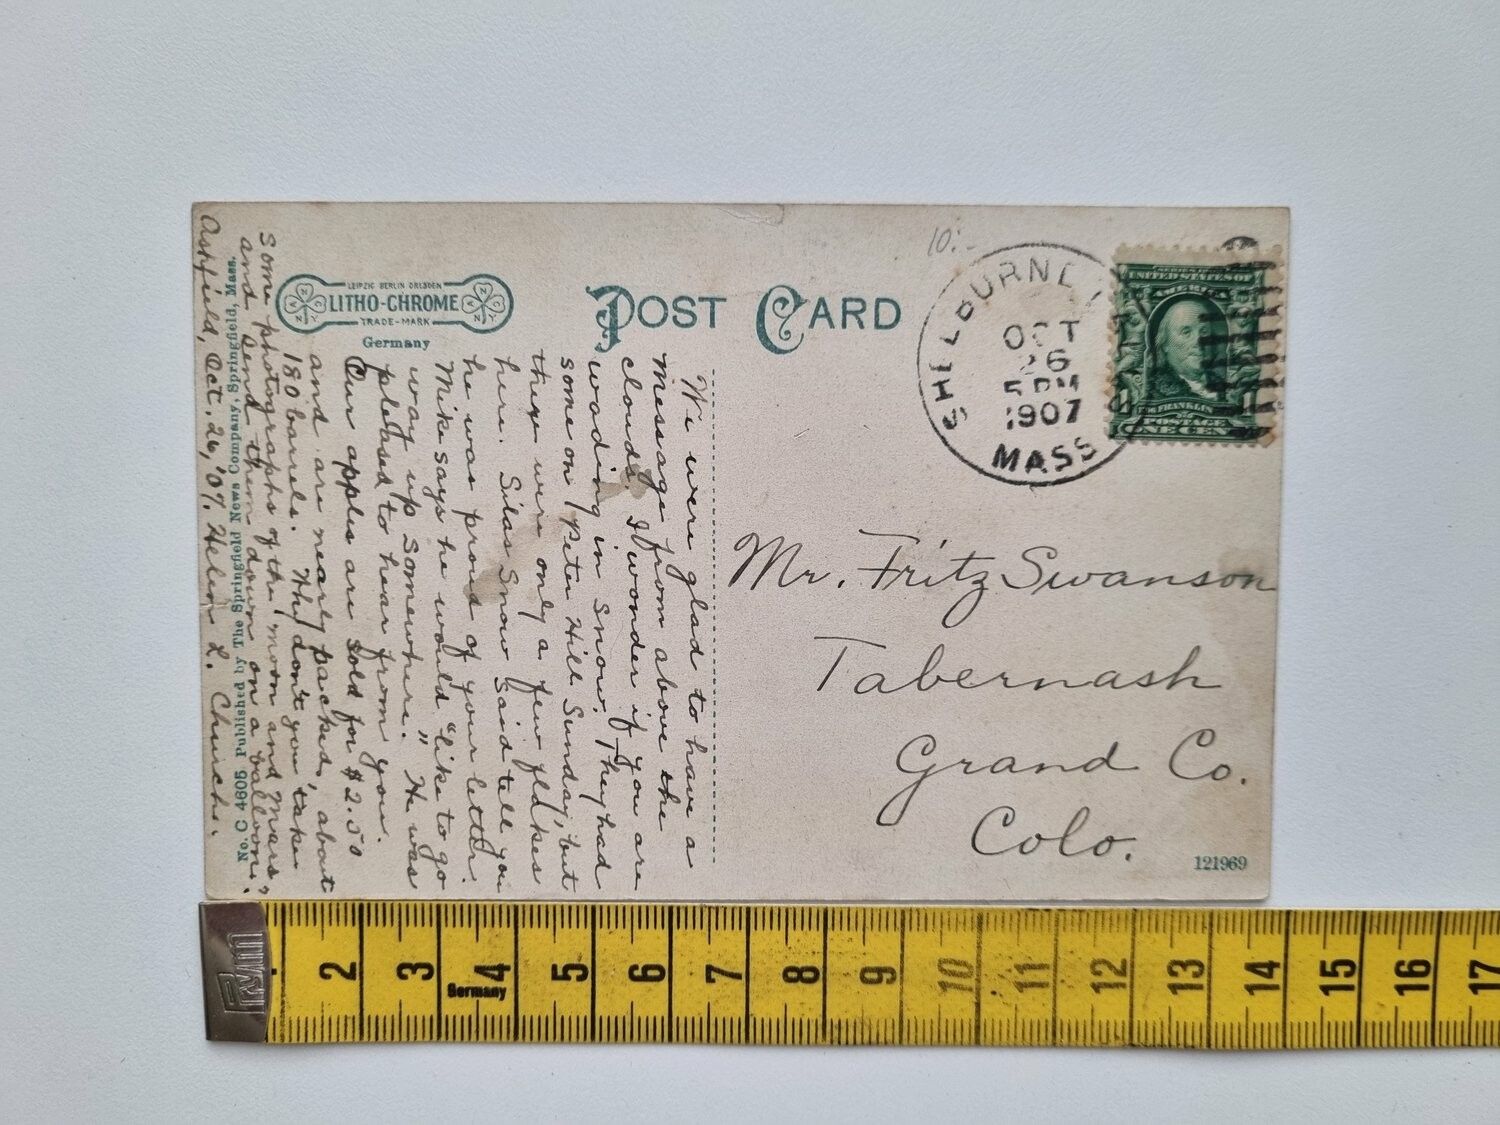 LEIPZIG BERLIN DRESDEN
LITHO-CHROME
TRADE-MARK
Germany
POST CARD
10:-
SHELBURNE
OCT
26
5 PM
1907
MASS
UNITED STATES OF
AMERICA
FRANKLIN
POSTAGE
ONE CENT
We were glad to have a
message from above the
clouds. I wonder if you are
wading in snow. They had
some on Peter Hill Sunday, but
there were only a few flakes
here. Silas Snow said tell you
he was proud of your letter.
Mike says he would "like to go
way up somewhere." He was
pleased to hear from you.
Our apples are sold for $2.50
and are nearly packed, about
180 barrels. Why don't you take
some photographs of the moon and Mars,
and send them down on a balloon.
Ashfield, Oct. 26, '07. Helen L. Church.
No. C 4605 Published by The Springfield News Company, Springfield, Mass.
Mr. Fritz Swanson
Tabernash
Grand Co.
Colo.
121969
2 3 4 5 6 7 8 9 10 11 12 13 14 15 16 17
Germany